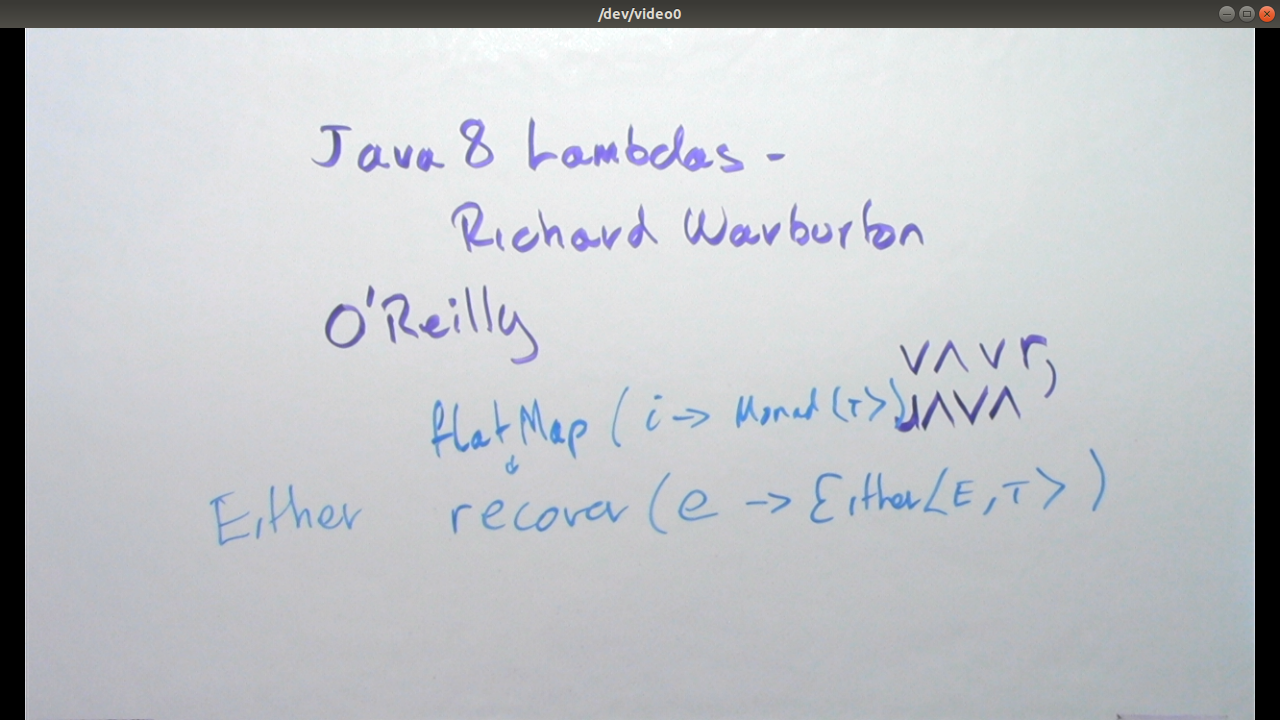 /dev/video0
Java 8 Lambdas -
Richard Warburton
O'Reilly
VΛVr,
JΛVΛ
flatMap ( i -> Monad<T>)
Either recover ( e -> Either<E, T> )